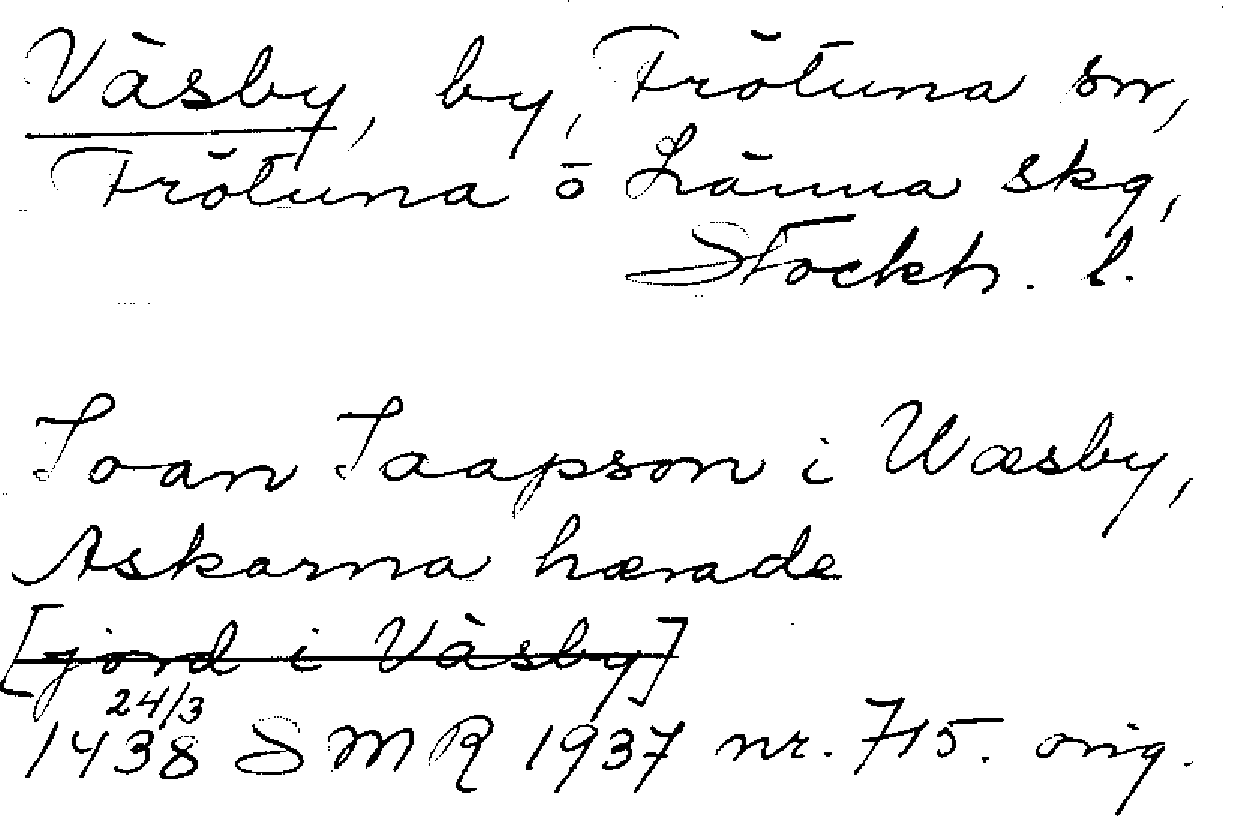 Väsby, by, Frötuna sn,
Frötuna o Länna skg,
Stockh. l.
Ioan Iaapson i Wæsby,
Askarna hærade
[jord i Väsby]
24/3
1438 SMR 1937 nr. 715. orig.